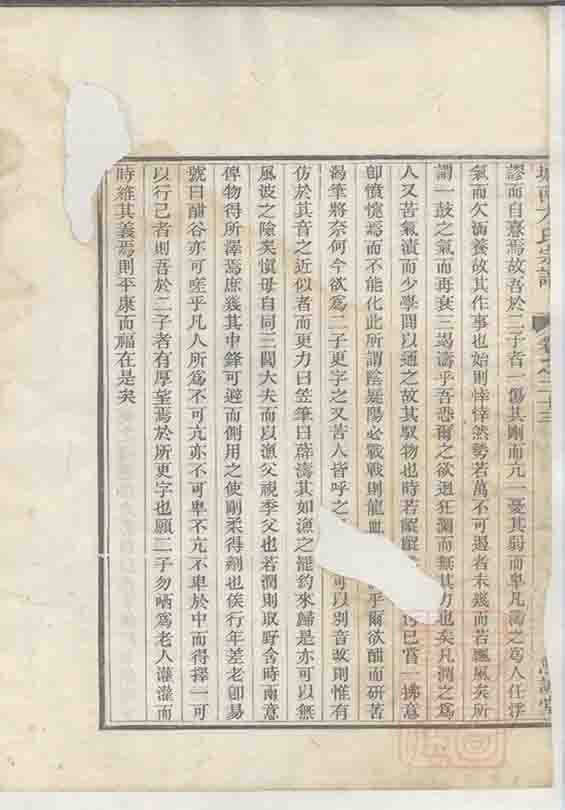 謬而自憙焉故吾於二子者一傷其剛而亢一憂其弱而卑凡濤之為人任浮
氣而欠涵養故其作事也始則悻悻然勢若萬不可遏者未幾而若飄風矣所
謂一鼓之氣而再衰三竭濤乎吾恐爾之欲迴狂瀾而無其力也矣凡潤之為
人又苦氣濆而少學問以通之故其馭物也時若齷齪 已嘗一拂意
卽憤懥焉而不能化此所謂陰疑陽必戰戰則龍血 乎爾欲酣而研苦
渴筆將奈何今欲為二子更字之又苦人皆呼之 可以別音故則惟有
仿於其音之近似者而更力曰笠筆曰薜濤其如漁之罷釣來歸是亦可以無
風波之險矣愼毋自同三閭大夫而以漁父視季父也若潤則取野含時雨意
俾物得所澤焉庶幾其中鋒可避而側用之使剛柔得劑也俟行年差老卽易
號曰酣谷亦可嗟乎凡人所為不可亢亦不可卑不亢不卑於中而得擇一可
以行己者則吾於二子者有厚望焉於所更字也願二子勿哂為老人灌灌而
時維其義焉則平康而福在是矣